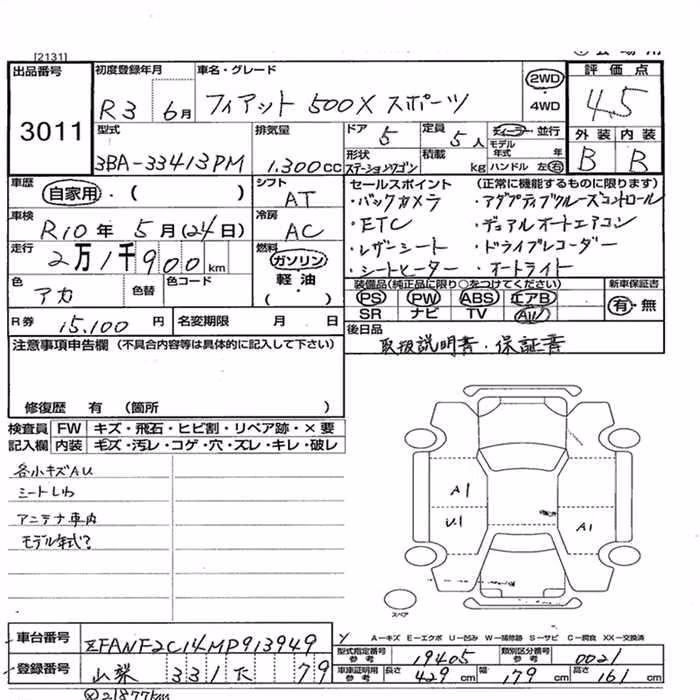 [2131]
出品番号 3011
初度登録年月 R3 6月
車名・グレード フィアット 500X スポーツ
2WD ・ 4WD
評価点 4.5
型式 3BA-33413PM
排気量 1.300cc
ドア 5 定員 5人
ディーラー・並行
モデル年式 年
形状 ステーションワゴン 積載 kg
ハンドル 左・右
外装 B 内装 B
車歴 自家用・( )
シフト AT
セールスポイント (正常に機能するものに限ります)
・バックカメラ ・アダプティブクルーズコントロール
・ETC ・デュアルオートエアコン
・レザーシート ・ドライブレコーダー
・シートヒーター ・オートライト
車検 R10年 5月(24日)
冷房 AC
走行 2万1千900km
燃料 ガソリン 軽油 ( )
色 アカ 色替 色コード
装備品(純正品に限り○をつけてください)
PS PW ABS エアB
SR ナビ TV AW
新車保証書 有・無
R券 15,100円 名変期限 月 日
後日品 取扱説明書・保証書
注意事項申告欄 (不具合内容等は具体的に記入して下さい)
修復歴 有 (箇所 )
検査員記入欄 FW キズ・飛石・ヒビ割・リペア跡・×要
内装 毛ズ・汚レ・コゲ・穴・ズレ・キレ・破レ
各小キズAU
シートしわ
アンテナ車内
モデル年式?
A1
U1
A1
スペア
A－キズ E－エクボ U－凹み W－補修跡 S－サビ C－腐食 XX－交換済
車台番号 ZFANF2C14MP913949
型式指定番号 参考 19405 類別区分番号 参考 0021
登録番号 山梨 331 て 79
車庫証明用 参考 長さ 429cm 幅 179cm 高さ 161cm
21877km